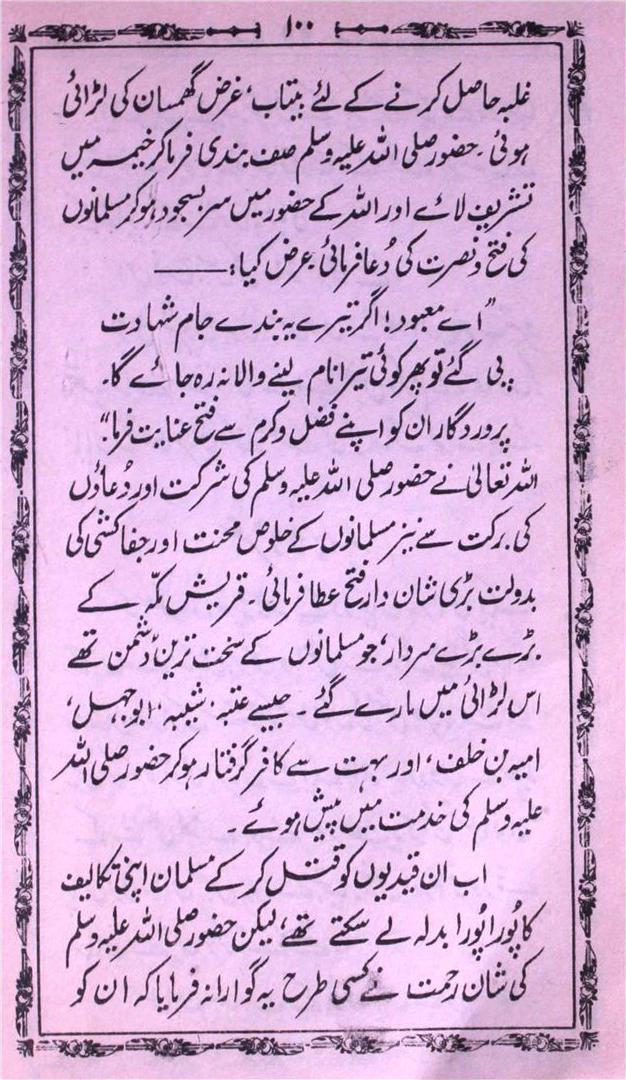 ۱۰۰
غلبہ حاصل کرنے کے لئے بیتاب، غرض گھمسان کی لڑائی
ہوئی۔ حضور صلی اللہ علیہ وسلم صف بندی فرما کر خیمہ میں
تشریف لائے اور اللہ کے حضور میں سر بسجود ہو کر مسلمانوں
کی فتح و نصرت کی دُعا فرمائی عرض کیا:———
"اے معبود! اگر تیرے یہ بندے جام شہادت
پی گئے تو پھر کوئی تیرا نام لینے والا نہ رہ جائے گا۔
پروردگار ان کو اپنے فضل و کرم سے فتح عنایت فرما"۔
اللہ تعالیٰ نے حضور صلی اللہ علیہ وسلم کی شرکت اور دُعاؤں
کی برکت سے نیز مسلمانوں کے خلوص محنت اور جفاکشی کی
بدولت بڑی شان دار فتح عطا فرمائی۔ قریش مکّہ کے
بڑے بڑے سردار، جو مسلمانوں کے سخت ترین دُشمن تھے
اس لڑائی میں مارے گئے۔ جیسے عتبہ، شیبہ، ابوجہل،
امیہ بن خلف، اور بہت سے کافر گرفتار ہو کر حضور صلی اللہ
علیہ وسلم کی خدمت میں پیش ہوئے۔
اب ان قیدیوں کو قتل کر کے مسلمان اپنی تکالیف
کا پُورا پُورا بدلہ لے سکتے تھے، لیکن حضور صلی اللہ علیہ وسلم
کی شان رحمت نے کسی طرح یہ گوارا نہ فرمایا کہ ان کو